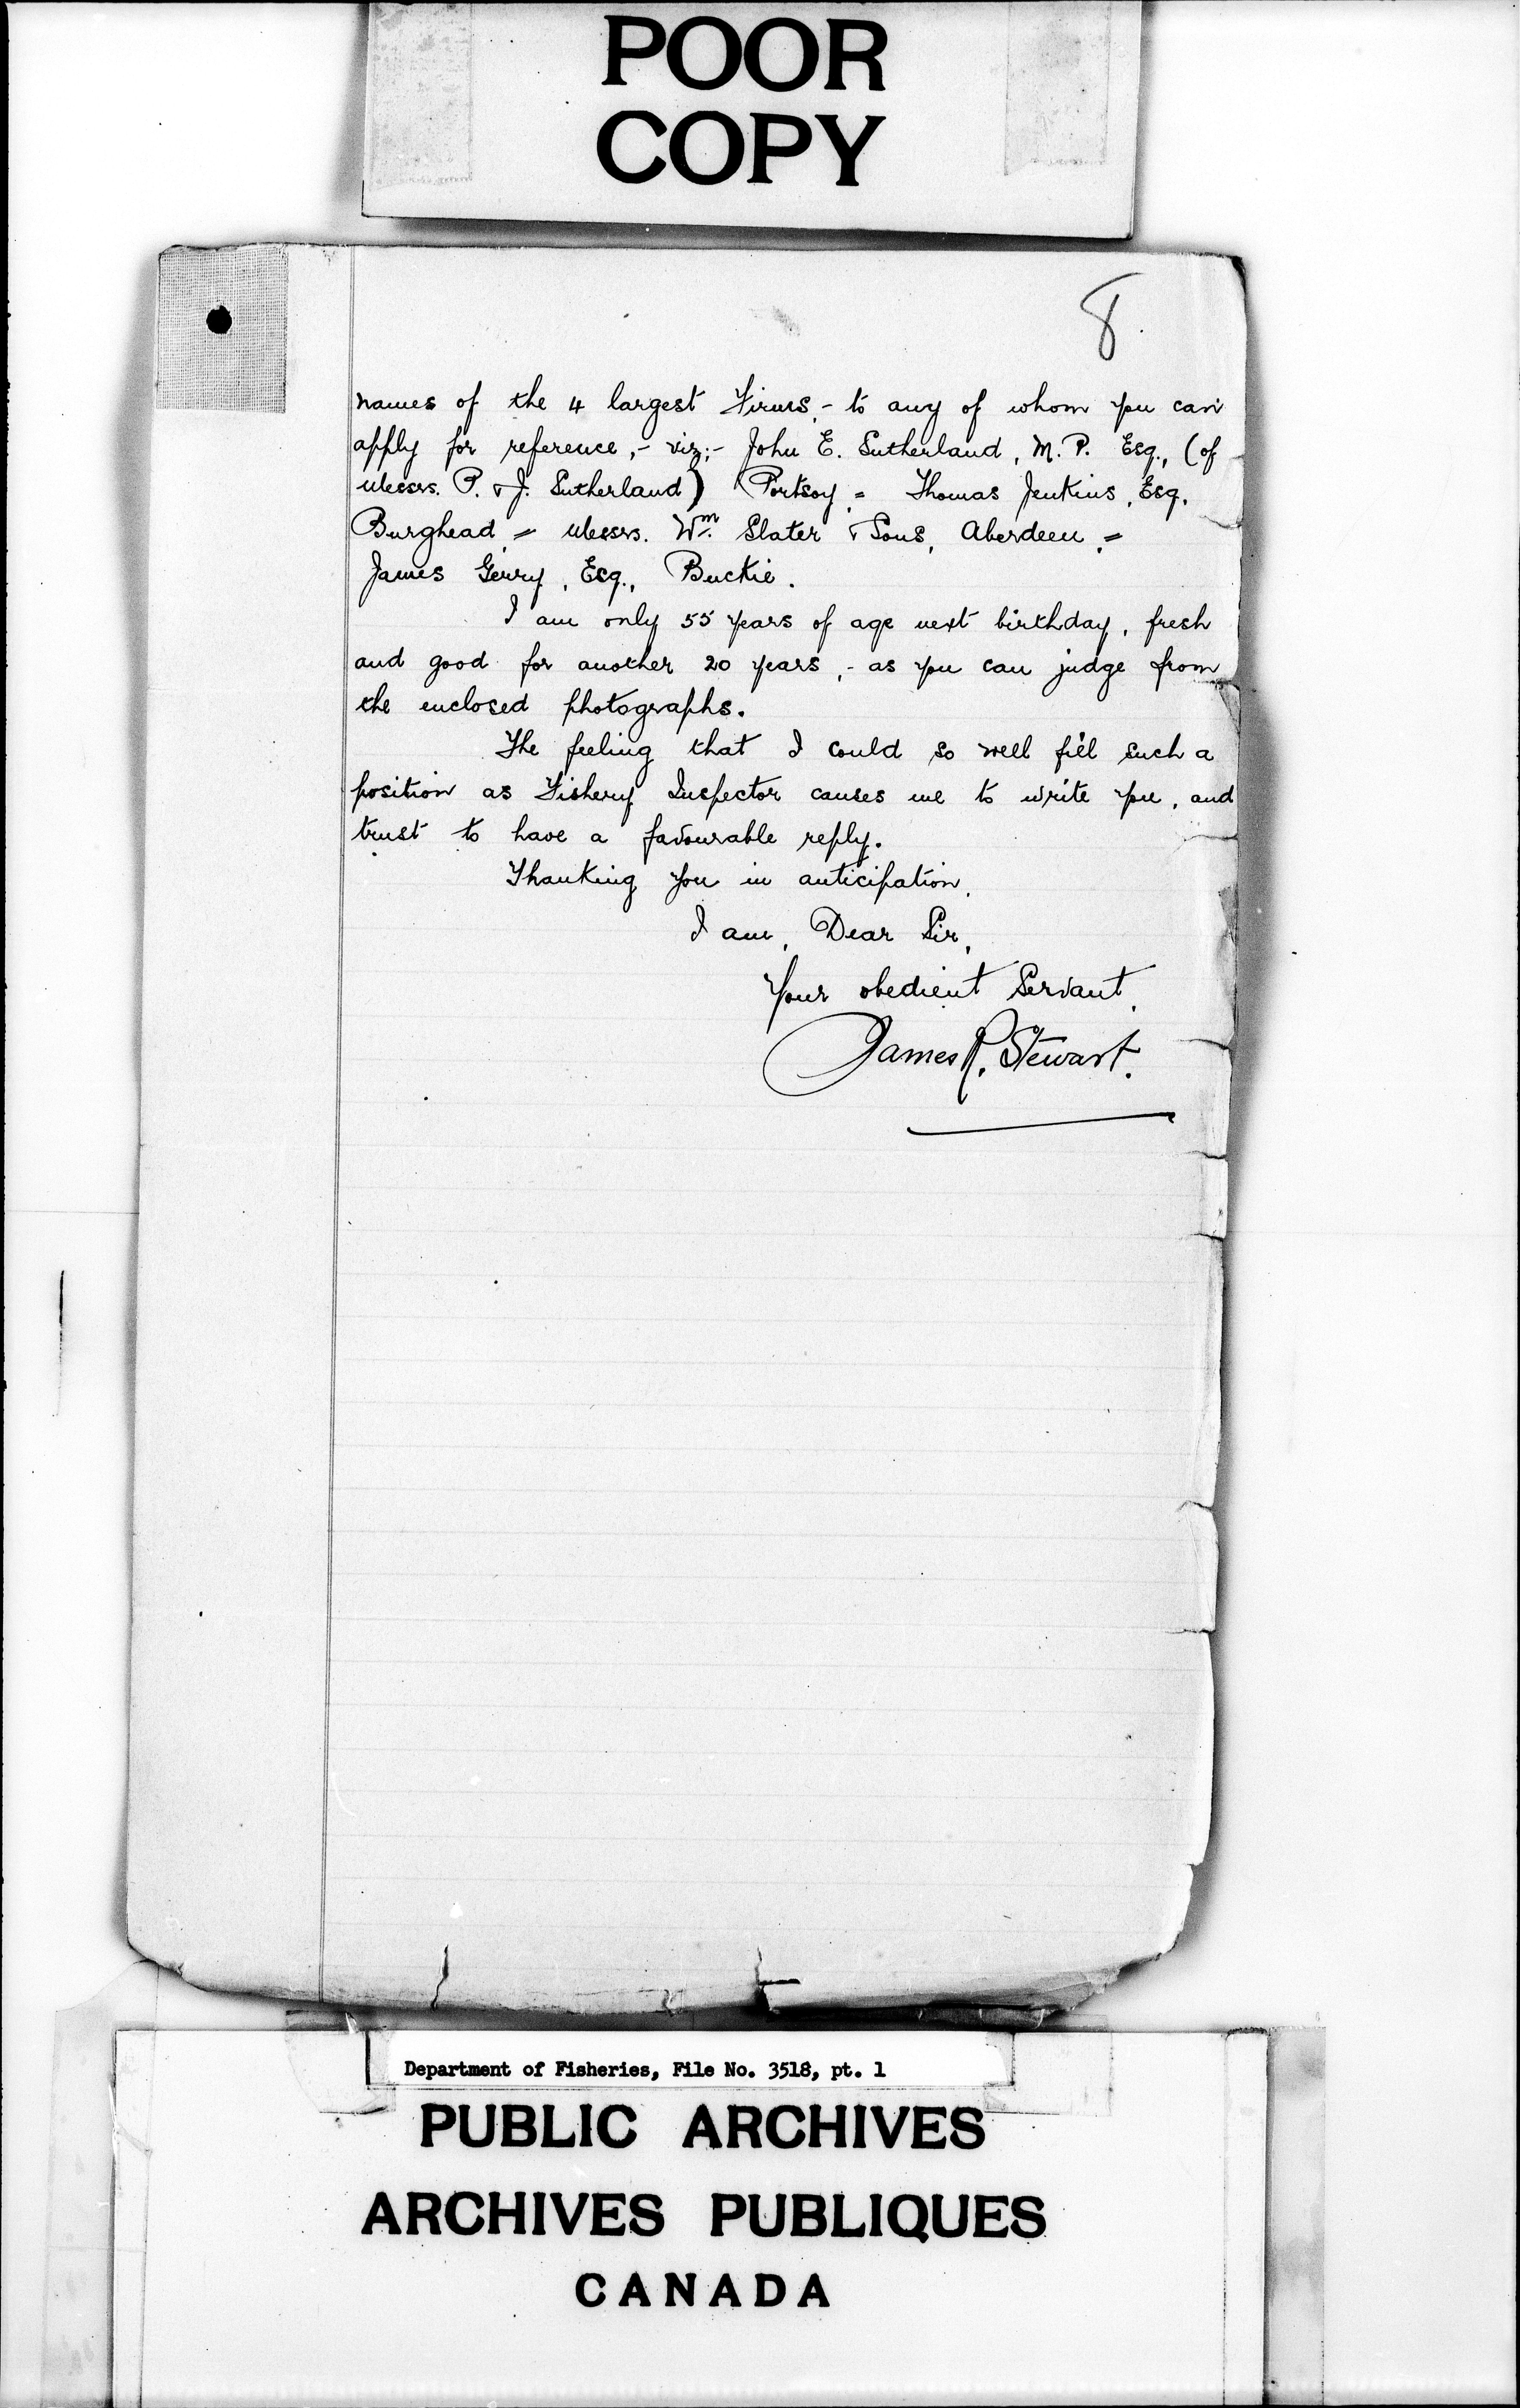 POOR
COPY
8.
names of the 4 largest Firms, - to any of whom you can
apply for reference, - viz; - John E. Sutherland, M. P. Esq., (of
Messrs. P. & J. Sutherland) Portsoy, = Thomas Jenkins, Esq.
Burghead, = Messrs. Wm. Slater & Sons, Aberdeen, =
James Gerry, Esq., Buckie.
I am only 55 years of age next birthday, fresh
and good for another 20 years, - as you can judge from
the enclosed photographs.
The feeling that I could so well fill such a
position as Fishery Inspector causes me to write you, and
trust to have a favourable reply.
Thanking you in anticipation,
I am, Dear Sir,
Your obedient Servant,
James R. Stewart.
Department of Fisheries, File No. 3518, pt. 1
PUBLIC ARCHIVES
ARCHIVES PUBLIQUES
CANADA